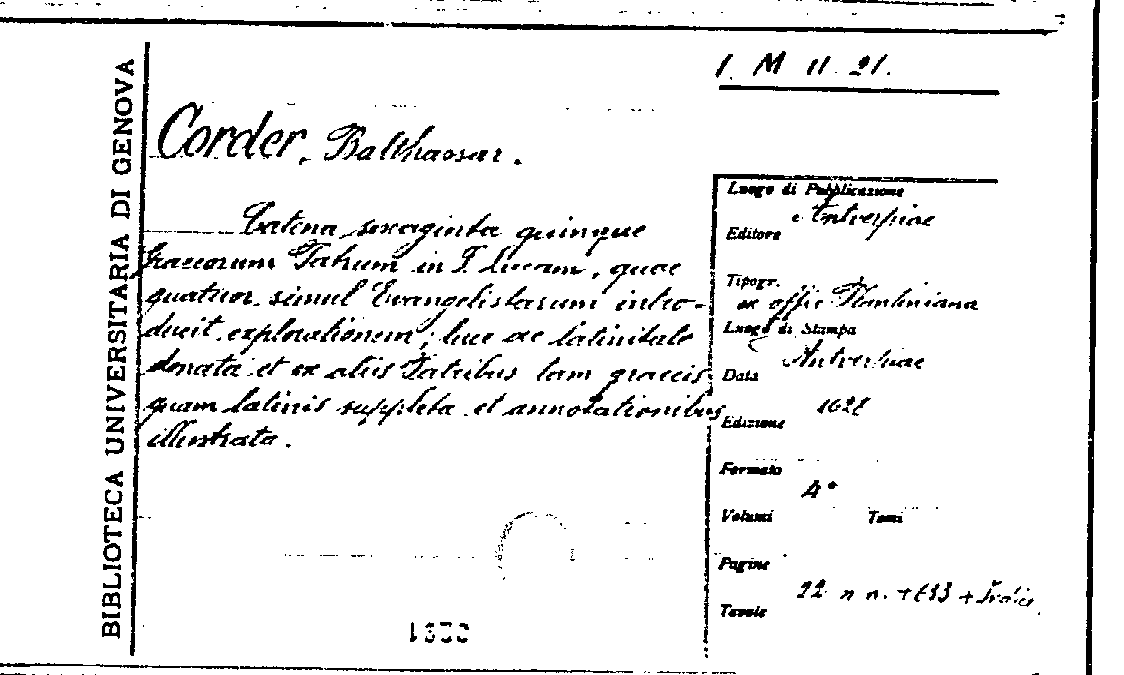 BIBLIOTECA UNIVERSITARIA DI GENOVA
1. M 11. 21.
Corder, Balthassar.
Catena sexaginta quinque
graecorum Patrum in S. Lucam, quae
quatuor simul Evangelistarum intro-
ducit explorationem; luce ac latinitate
donata et ex aliis Patribus tam graecis
quam latinis suppleta et annotationibus
illustrata.
Luogo di Pubblicazione
Antverpiae
Editore
Tipogr.
ex offic Plantiniana
Luogo di Stampa
Antverpiae
Data
Edizione
Formato
4°
Volumi Tomi
Pagine
22 n n. + + Indic.
Tavole